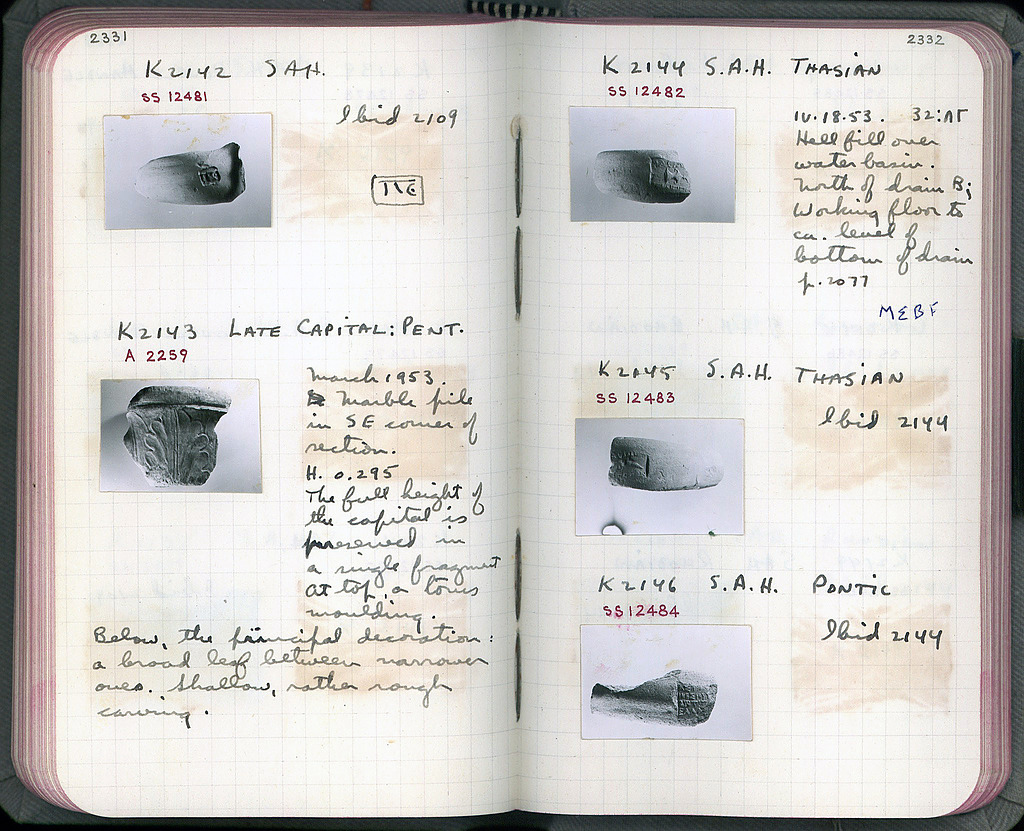 2331
K 2142 SAH.
SS 12481
Ibid 2109
K 2143 LATE CAPITAL: PENT.
A 2259
March 1953.
Marble pile
in SE corner of
section.
H. 0.295
The full height of
the capital is
preserved in
a single fragment
at top, a torus
moulding.
Below, the principal decoration:
a broad leaf between narrower
ones. Shallow, rather rough
carving.
2332
K 2144 S.A.H. THASIAN
SS 12482
IV.18.53. 32:ΛΓ
Hell fill over
water basin.
North of drain B;
Working floor to
ca. level of
bottom of drain
p. 2077
MEBF
K 2145 S.A.H. THASIAN
SS 12483
Ibid 2144
K 2146 S.A.H. PONTIC
SS 12484
Ibid 2144